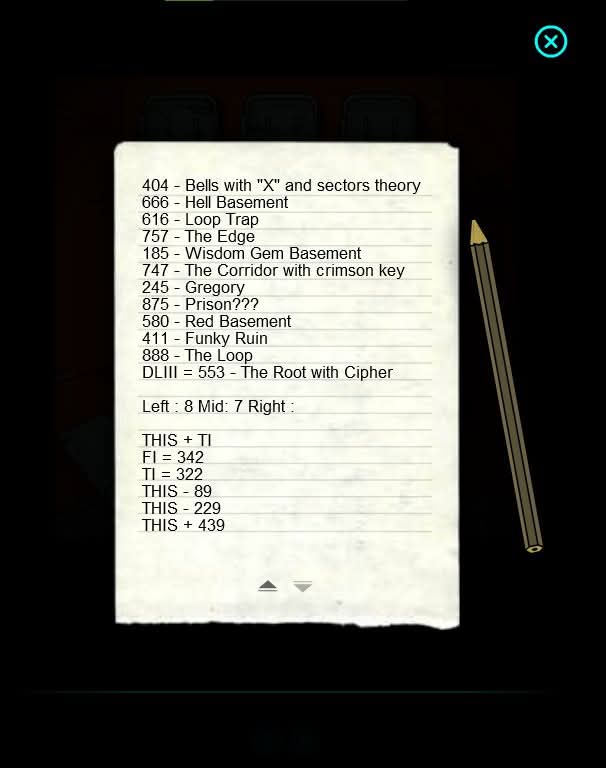 404 - Bells with "X" and sectors theory
666 - Hell Basement
616 - Loop Trap
757 - The Edge
185 - Wisdom Gem Basement
747 - The Corridor with crimson key
245 - Gregory
875 - Prison???
580 - Red Basement
411 - Funky Ruin
888 - The Loop
DLIII = 553 - The Root with Cipher
Left : 8 Mid: 7 Right :
THIS + TI
FI = 342
TI = 322
THIS - 89
THIS - 229
THIS + 439